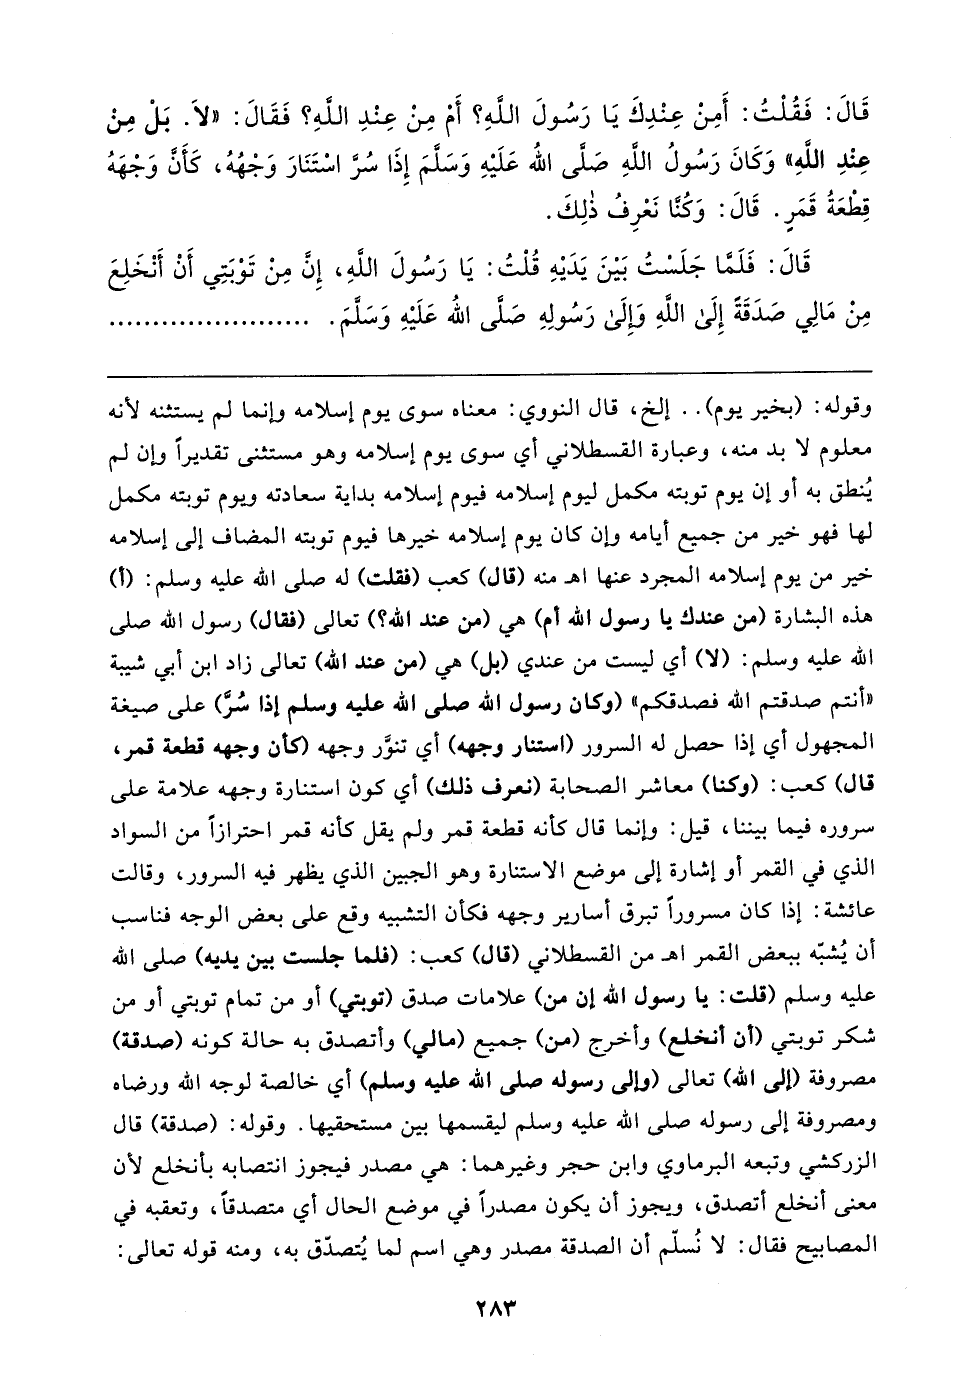 قَالَ: فَقُلْتُ: أَمِنْ عِنْدِكَ يَا رَسُولَ اللَّهِ؟ أَمْ مِنْ عِنْدِ اللَّهِ؟ فَقَالَ: «لاَ. بَلْ مِنْ
عِنْدِ اللَّهِ» وَكَانَ رَسُولُ اللَّهِ صَلَّى اللهُ عَلَيْهِ وَسَلَّمَ إِذَا سُرَّ اسْتَنَارَ وَجْهُهُ، كَأَنَّ وَجْهَهُ
قِطْعَةُ قَمَرٍ. قَالَ: وَكُنَّا نَعْرِفُ ذٰلِكَ.
قَالَ: فَلَمَّا جَلَسْتُ بَيْنَ يَدَيْهِ قُلْتُ: يَا رَسُولَ اللهِ، إِنَّ مِنْ تَوْبَتِي أَنْ أَنْخَلِعَ
مِنْ مَالِي صَدَقَةً إِلَىٰ اللَّهِ وَإِلَىٰ رَسُولِهِ صَلَّى اللهُ عَلَيْهِ وَسَلَّمَ. .......................
وقوله: (بخير يوم).. إلخ، قال النووي: معناه سوى يوم إسلامه وإنما لم يستثنه لأنه
معلوم لا بد منه، وعبارة القسطلاني أي سوى يوم إسلامه وهو مستثنى تقديراً وإن لم
يُنطق به أو إن يوم توبته مكمل ليوم إسلامه فيوم إسلامه بداية سعادته ويوم توبته مكمل
لها فهو خير من جميع أيامه وإن كان يوم إسلامه خيرها فيوم توبته المضاف إلى إسلامه
خير من يوم إسلامه المجرد عنها اهـ منه (قال) كعب (فقلت) له صلى الله عليه وسلم: (أ)
هذه البشارة (من عندك يا رسول الله أم) هي (من عند الله؟) تعالى (فقال) رسول الله صلى
الله عليه وسلم: (لا) أي ليست من عندي (بل) هي (من عند الله) تعالى زاد ابن أبي شيبة
«أنتم صدقتم الله فصدقكم» (وكان رسول الله صلى الله عليه وسلم إذا سُرَّ) على صيغة
المجهول أي إذا حصل له السرور (استنار وجهه) أي تنوَّر وجهه (كأن وجهه قطعة قمر،
قال) كعب: (وكنا) معاشر الصحابة (نعرف ذلك) أي كون استنارة وجهه علامة على
سروره فيما بيننا، قيل: وإنما قال كأنه قطعة قمر ولم يقل كأنه قمر احترازاً من السواد
الذي في القمر أو إشارة إلى موضع الاستنارة وهو الجبين الذي يظهر فيه السرور، وقالت
عائشة: إذا كان مسروراً تبرق أسارير وجهه فكأن التشبيه وقع على بعض الوجه فناسب
أن يُشبّه ببعض القمر اهـ من القسطلاني (قال) كعب: (فلما جلست بين يديه) صلى الله
عليه وسلم (قلت: يا رسول الله إن من) علامات صدق (توبتي) أو من تمام توبتي أو من
شكر توبتي (أن أنخلع) وأخرج (من) جميع (مالي) وأتصدق به حالة كونه (صدقة)
مصروفة (إلى الله) تعالى (وإلى رسوله صلى الله عليه وسلم) أي خالصة لوجه الله ورضاه
ومصروفة إلى رسوله صلى الله عليه وسلم ليقسمها بين مستحقيها. وقوله: (صدقة) قال
الزركشي وتبعه البرماوي وابن حجر وغيرهما: هي مصدر فيجوز انتصابه بأنخلع لأن
معنى أنخلع أتصدق، ويجوز أن يكون مصدراً في موضع الحال أي متصدقاً، وتعقبه في
المصابيح فقال: لا نُسلّم أن الصدقة مصدر وهي اسم لما يُتصدّق به، ومنه قوله تعالى:
٢٨٣